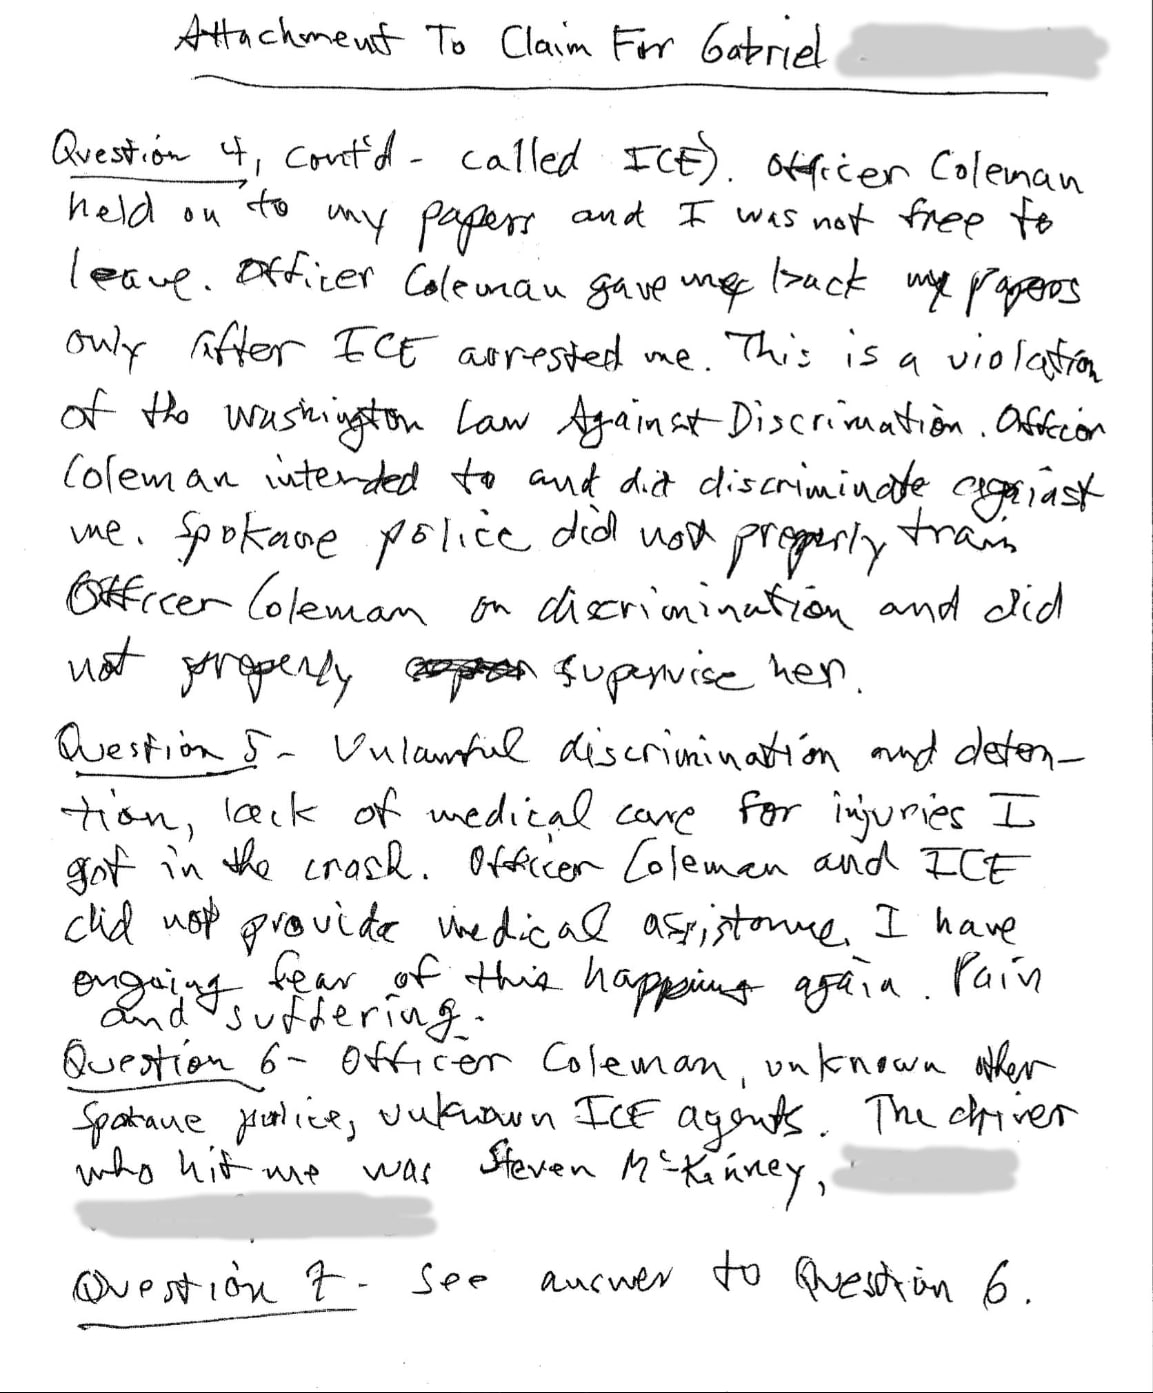 Attachment To Claim For Gabriel
Question 4, cont'd - called ICE). Officer Coleman
held on to my papers and I was not free to
leave. Officer Coleman gave me back my papers
only after ICE arrested me. This is a violation
of the Washington Law Against Discrimination. Officer
Coleman intended to and did discriminate against
me. Spokane police did not properly train
Officer Coleman on discrimination and did
not properly supervise her.
Question 5 - Unlawful discrimination and deten-
tion, lack of medical care for injuries I
got in the crash. Officer Coleman and ICE
did not provide medical assistance. I have
ongoing fear of this happening again. Pain
and suffering.
Question 6 - Officer Coleman, unknown other
Spokane police, unknown ICE agents. The driver
who hit me was Steven McKinney,
Question 7 - See answer to Question 6.